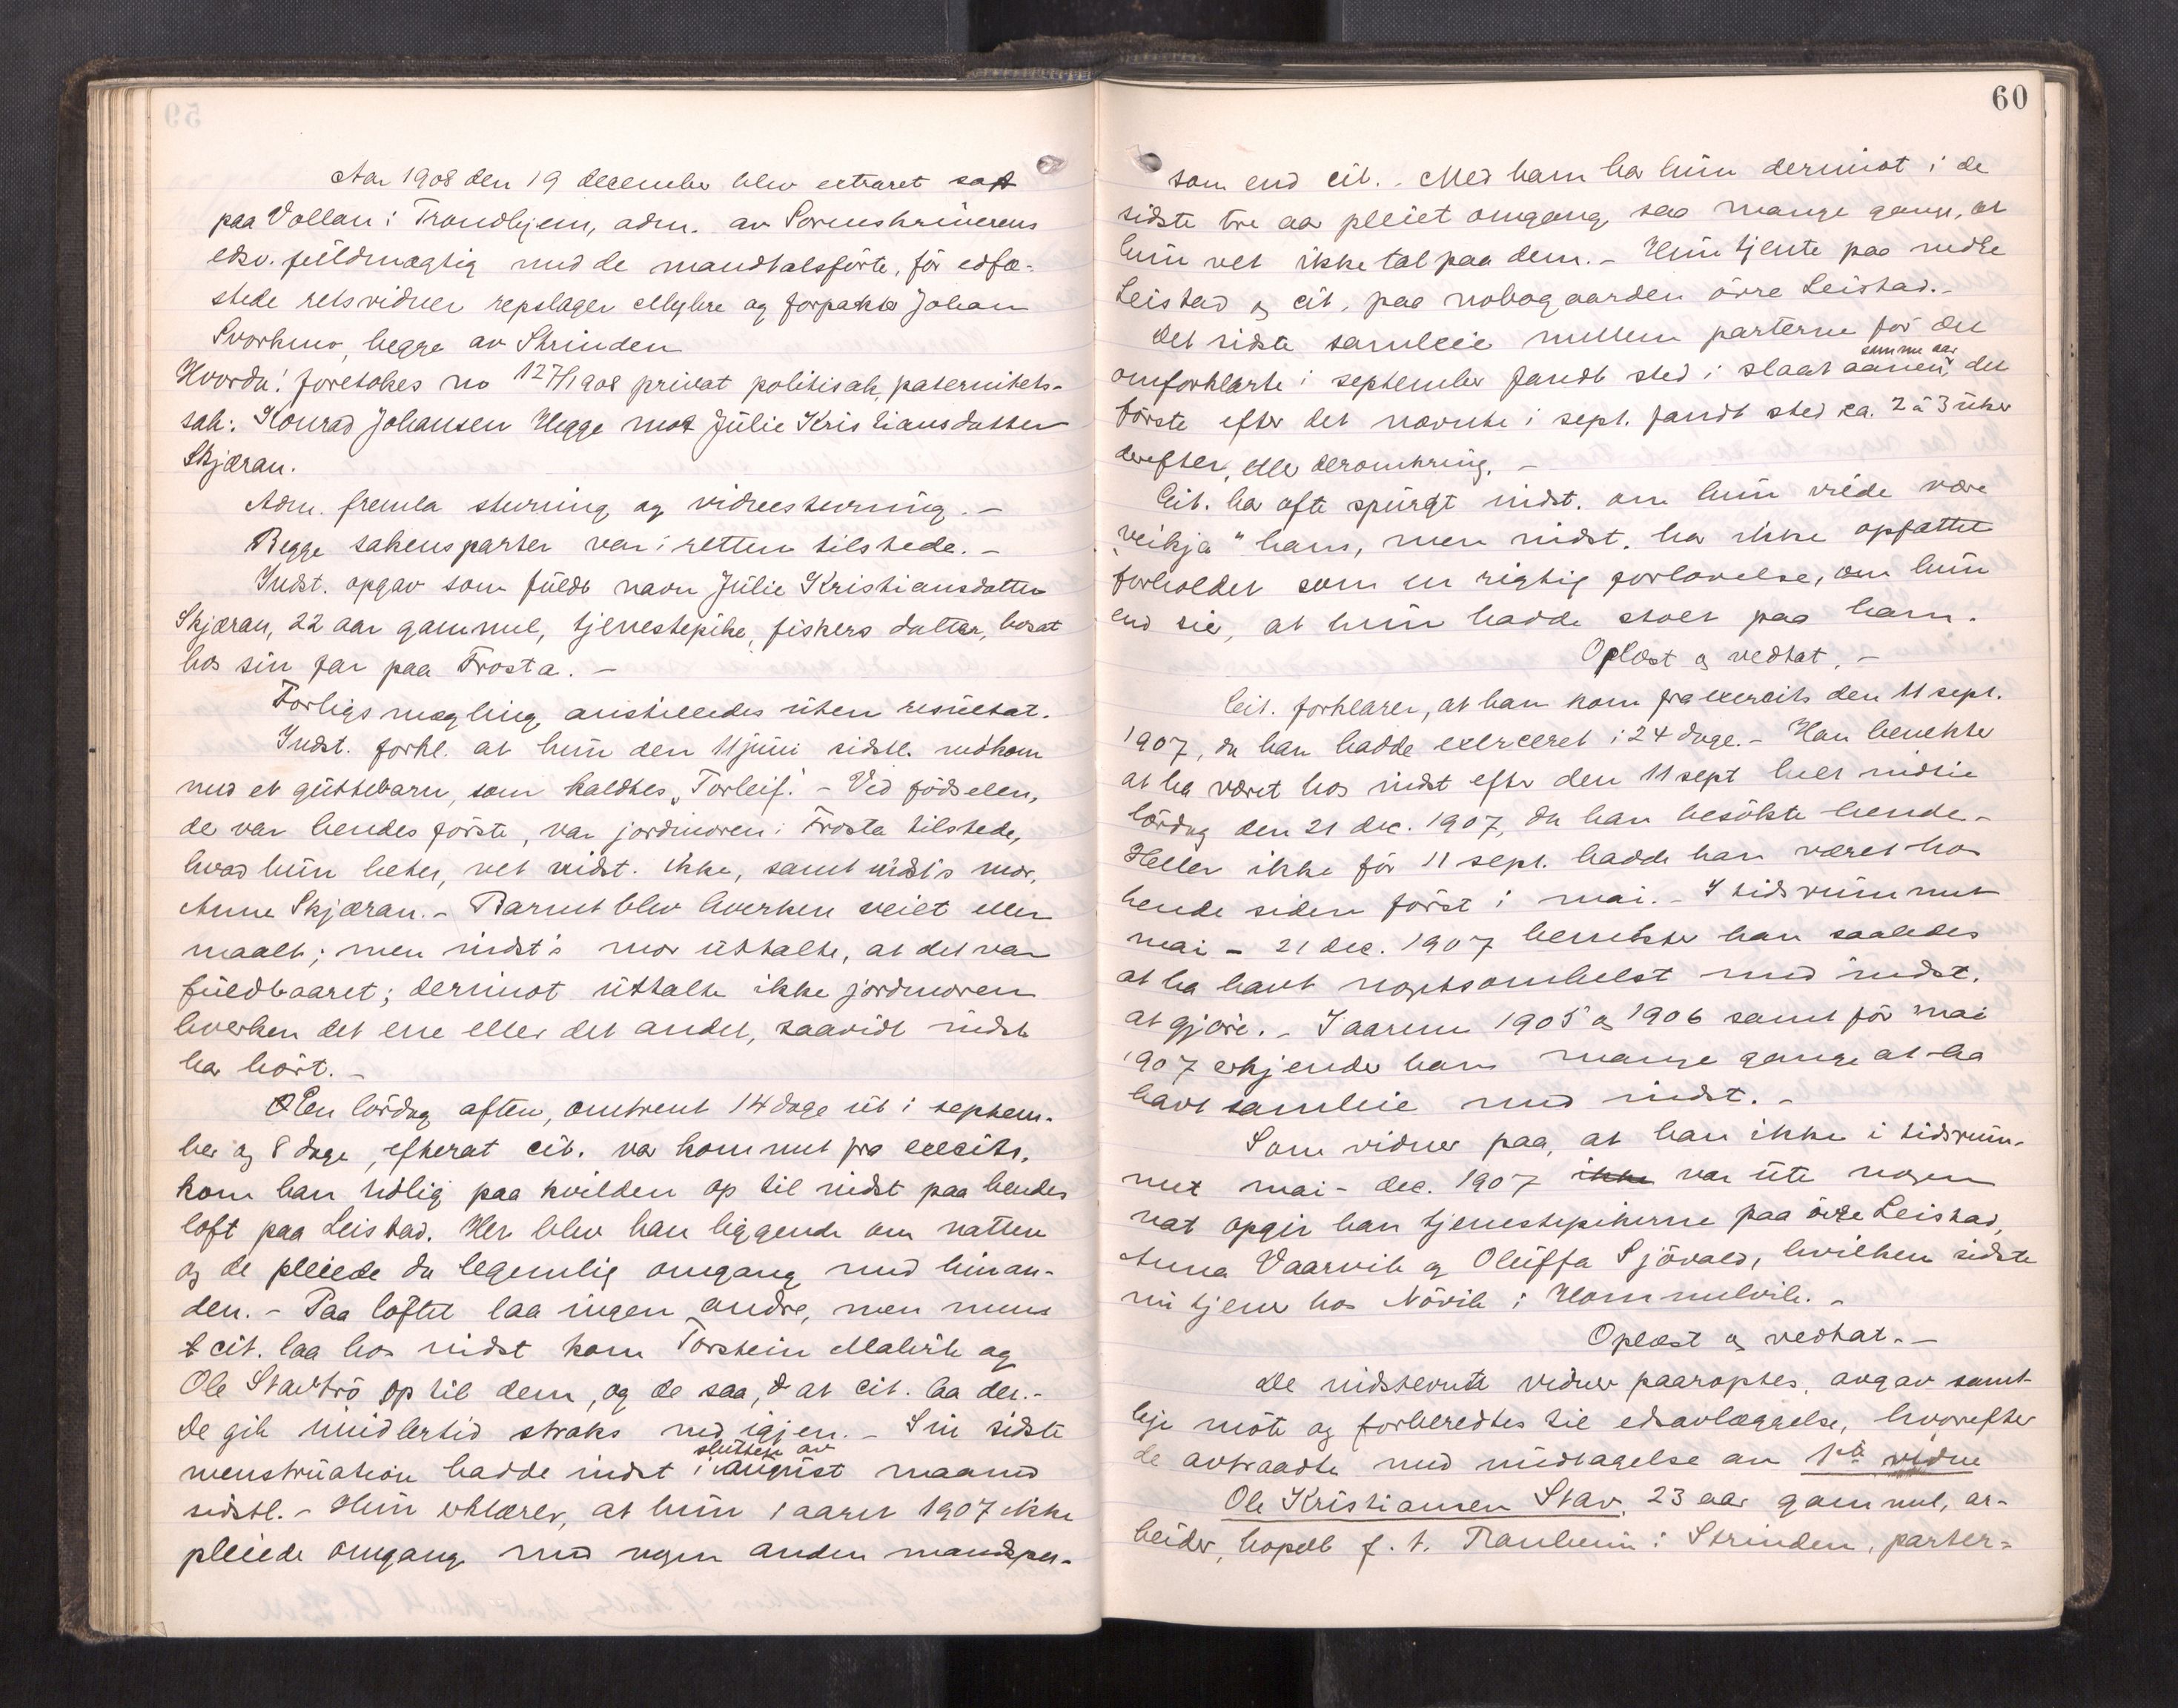 Aar 1908 den 19 december blev extraret sat
paa Vollan i Trondhjem, adm. av Sorenskriverens
edsv. fuldmægtig med de mandtalsførte, før edfæ-
stede retsvidner repslager Myhre og forpakter Johan
Svorkmo, begge av Strinden
Hvorda! foretokes no 127/1908 privat politisak, paternitets-
sak: Konrad Johansen Hegge mot Julie Kristiansdatter
Skjæran.
Adm. fremla stevning og vidnestevning. -
Begge sakens parter var i retten tilstede. -
Indst. opgav som fuldt navn Julie Kristiansdatter
Skjæran, 22 aar gammel, tjenestepike, fiskers datter, bosat
hos sin far paa Frosta. -
Forligsmægling anstilledes uten resultat.
Indst. forkl. at hun den 11 juni sidstl. nedkom
med et guttebarn, som kaldtes „Torleif." - Ved fødselen,
de var hendes første, var jordmoren i Frosta tilstede,
hvad hun heter, vet indst. ikke, samt indst's mor,
Anne Skjæran. - Barnet blev hverken veiet eller
maalt; men indst's mor uttalte, at det var
fuldbaaret; derimot uttalte ikke jordmoren
hverken det ene eller det andet, saavidt indst
har hørt. -
En lørdag aften, omtrent 14 dage ut i septem-
ber og 8 dage, efterat cit. var kommet fra excercits,
kom han tidlig paa kvelden op til indst paa hendes
loft paa Leistad. Her blev han liggende om natten
og de pleiede da legemlig omgang med hinan-
den. - Paa loftet laa ingen andre, men mens
cit. laa hos indst kom Torstein Malvik og
Ole Stavtrø op til dem, og de saa, at cit. laa der. -
De gik imidlertid straks ned igjen. - Sin sidste
menstruation hadde indst i slutten av august maaned
sidstl. - Hun erklærer, at hun i aaret 1907 ikke
pleiede omgang med nogen anden mandsper-
60
son end cit. . Med ham har hun derimot i de
sidste tre aar pleiet omgang saa mange gange, at
hun vet ikke tal paa dem. - Hun tjente paa nedre
Leistad og cit. paa nabogaarden øvre Leistad. -
Det sidste samleie mellem parterne før det
omforklarte i september fandt sted i slaataanen samme aar, det
første efter det nævnte i sept. fandt sted ca. 2 à 3 uker
derefter, eller deromkring. -
Cit. har ofte spurgt indst. om hun vilde være
„veikja" hans, men indst. har ikke opfattet
forholdet som en rigtig forlovelse, om hun
end sie, at hun hadde stolt paa ham.
Oplæst og vedtat. -
Cit. forklarer, at han kom fra exercits den 11 sept.
1907, da han hadde exerceret i 24 dage. - Han benekter
at ha været hos indst efter den 11 sept helt indtil
lørdag den 21 dec. 1907, da han besøkte hende. -
Heller ikke før 11 sept. hadde han været hos
hende siden først i mai. - I tidsrummet
mai - 21 dec. 1907 benekter han saaledes
at ha havt nogetsomhelst med indst.
at gjøre. - I aarene 1905 og 1906 samt før mai
1907 erkjender han mange gange at ha
havt samleie med indst. -
Som vidner paa, at han ikke i tidsrum-
met mai - dec. 1907 ikke var ute nogen
nat opgir han tjenestepikerne paa øvre Leistad,
Anna Vaarvik og Oluffa Sjøvald, hvilken sidste
nu tjener hos Nøvik i Hommelvik. -
Oplæst og vedtat. -
De indstevnte vidner paaroptes, avgav samt-
lige møte og forberedtes til edsavlæggelse, hvorefter
de avtraadte med undtagelse av 1ste vidne
Ole Kristiansen Stav, 23 aar gammel, ar-
beider, bopæl f. t. Ranheim i Strinden, parter-